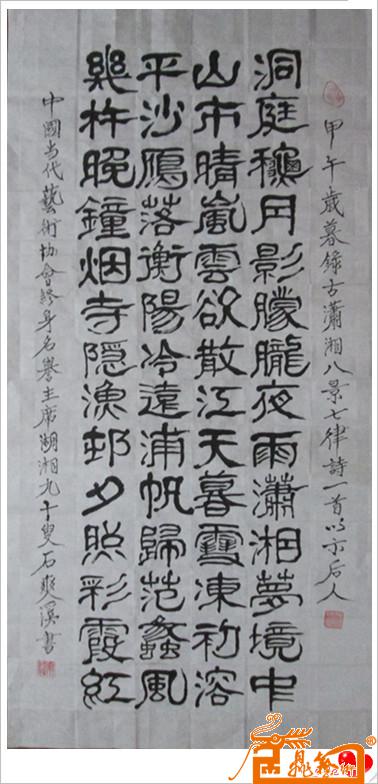 甲午歲暮錄古瀟湘八景七律詩一首以示后人
洞庭龝月影朦朧夜雨瀟湘夢境中
山市晴嵐雲欲散江天暮雪凍初溶
平沙鴈落衡陽冷遠浦帆歸范蠡風
幾杵晚鐘烟寺隐漁邨夕照彩霞紅
中國当代藝術协會終身名譽主席湖湘九十叟石爽溟書